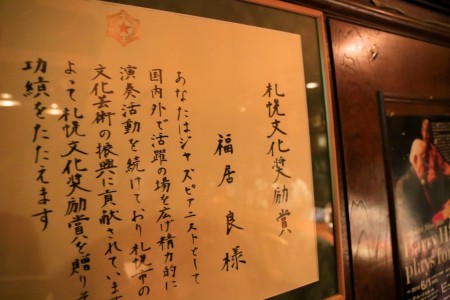 札幌文化奨励賞
福居良様
あなたはジャズピアニストとして
国内外で活躍の場を広げ精力的に
演奏活動を続けており札幌市の
文化芸術の振興に貢献されています
よって札幌文化奨励賞を贈りそ
功績をたたえます
plays